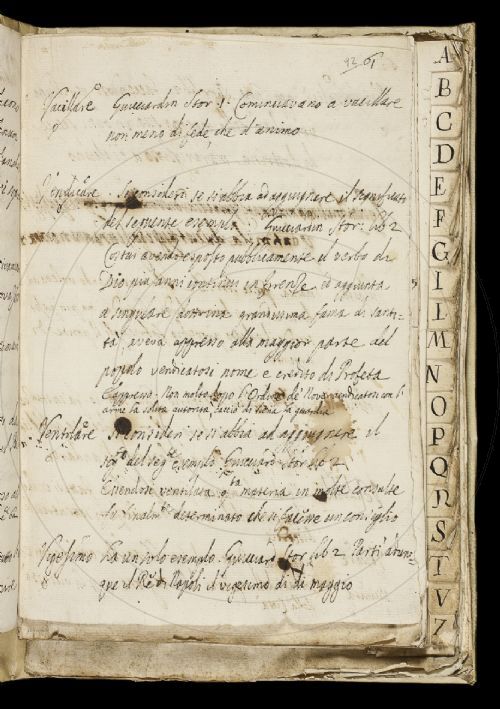 93 61
Vacillare Guicciardin Stor. 1. Cominciavano a vacillare
non meno di fede, che d'animo
Vendicare. Si consideri se si abbia ad aggiugnere il significato
del seguente esempio Guicciardin Stor: lib 2
Costui avendo esposto publicamente il verbo di
Dio piu anni continui in Firenze, et aggiunta
a singulare dottrina grandissima fama di santi-
tà, aveva appresso alla maggior parte del
popolo vendicatosi nome e credito di Profeta
Appresso. Non molto dopo l'Ordine de' Nove vendicatosi con l'
arme la solita autorità, cacciò di Siena la guardia
Ventilare Si consideri se si abbia ad aggiugnere il
del seg.te esempio Guicciard Stor lib 2
Essendosi ventilata q.ta materia in molte consulte
fu finalm.te determinato che si facesse un consiglio
Vigesimo Ha un solo esempio. Guicciard Stor lib 2 Partì adunq-
que il Re di Napoli il vigesimo dì di maggio
A
B
C
D
E
F
G
I
L
M
N
O
P
Q
R
S
T
V
Z